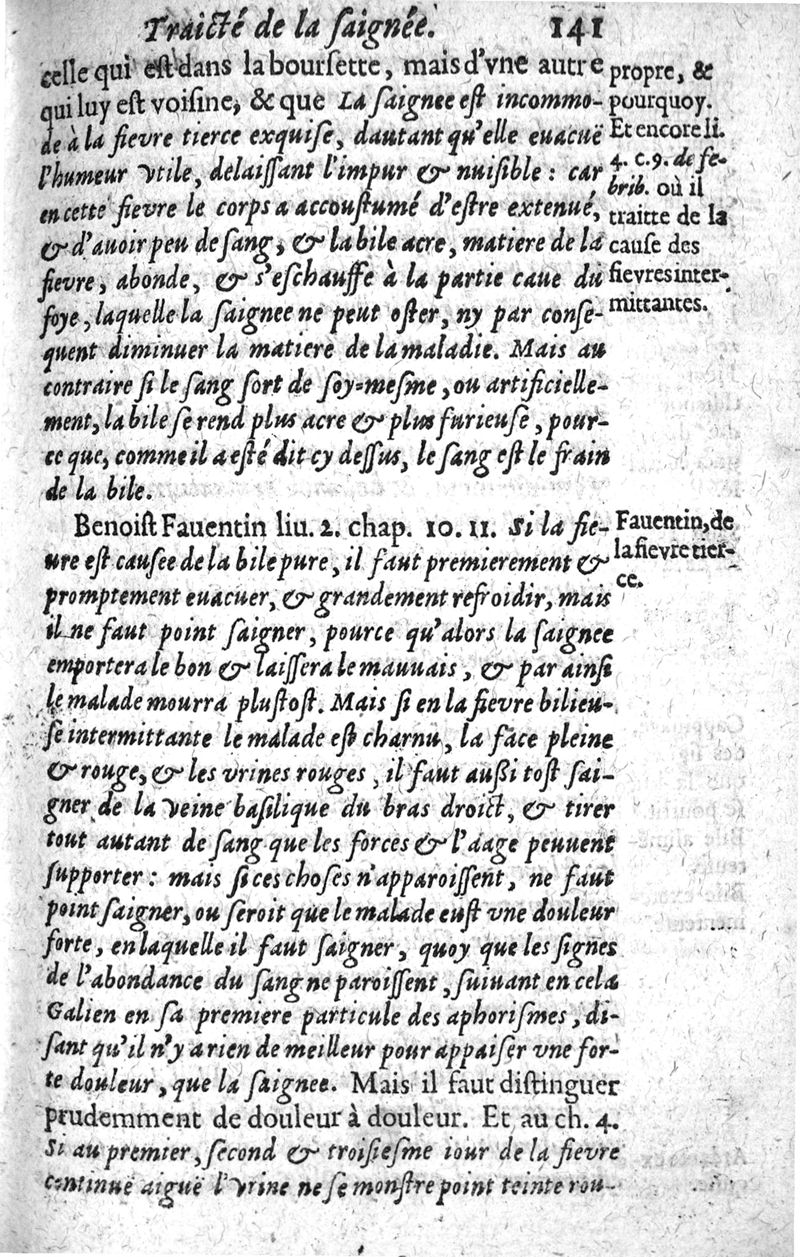 Traicté de la saignée. 141
celle qui est dans la boursette, mais d'vne autre
qui luy est voisine, & que La saignee est incommo-
de à la fievre tierce exquise, dautant qu'elle euacuë
l'humeur vtile, delaissant l'impur & nuisible : car
en cette fievre le corps a accoustumé d'estre extenué,
& d'auoir peu de sang, & la bile acre, matiere de la
fievre, abonde, & s'eschauffe à la partie caue du
foye, laquelle la saignee ne peut oster, ny par conse-
quent diminuer la matiere de la maladie. Mais au
contraire si le sang sort de soy-mesme, ou artificielle-
ment, la bile se rend plus acre & plus furieuse, pour-
ce que, comme il a esté dit cy dessus, le sang est le frain
de la bile.
propre, &
pourquoy.
Et encore li.
4. c. 9. de fe-
brib. où il
traitte de la
cause des
fievres inter-
mittantes.
Benoist Fauentin liu. 2. chap. 10. 11. Si la fie-
ure est causee de la bile pure, il faut premierement &
promptement euacuer, & grandement refroidir, mais
il ne faut point saigner, pource qu'alors la saignee
emportera le bon & laissera le mauuais, & par ainsi
le malade mourra plustost. Mais si en la fievre bilieu-
se intermittante le malade est charnu, la face pleine
& rouge, & les vrines rouges, il faut aussi tost sai-
gner de la veine basilique du bras droict, & tirer
tout autant de sang que les forces & l'aage peuuent
supporter : mais si ces choses n'apparoissent, ne faut
point saigner, ou seroit que le malade eust vne douleur
forte, en laquelle il faut saigner, quoy que les signes
de l'abondance du sang ne paroissent, suiuant en cela
Galien en sa premiere particule des aphorismes, di-
sant qu'il n'y a rien de meilleur pour appaiser vne for-
te douleur, que la saignee. Mais il faut distinguer
prudemment de douleur à douleur. Et au ch. 4.
Si au premier, second & troisiesme iour de la fievre
continuë aiguë l'vrine ne se monstre point teinte rou-
Fauentin, de
la fievre tier-
ce.